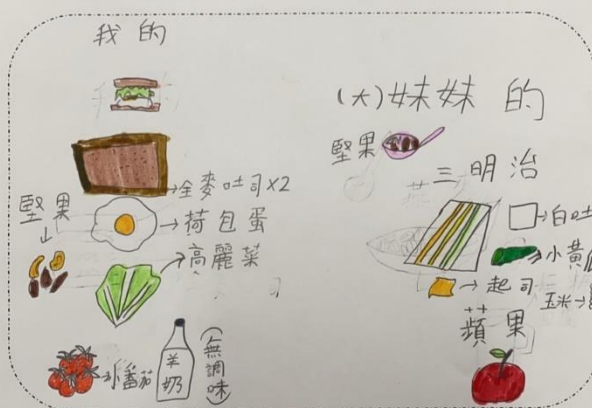 我的
全麥吐司×2
荷包蛋
堅果
高麗菜
小番茄
羊奶
(無調味)
(大)妹妹的
堅果
三明治
白吐
小黃
起司
玉米→
蘋果